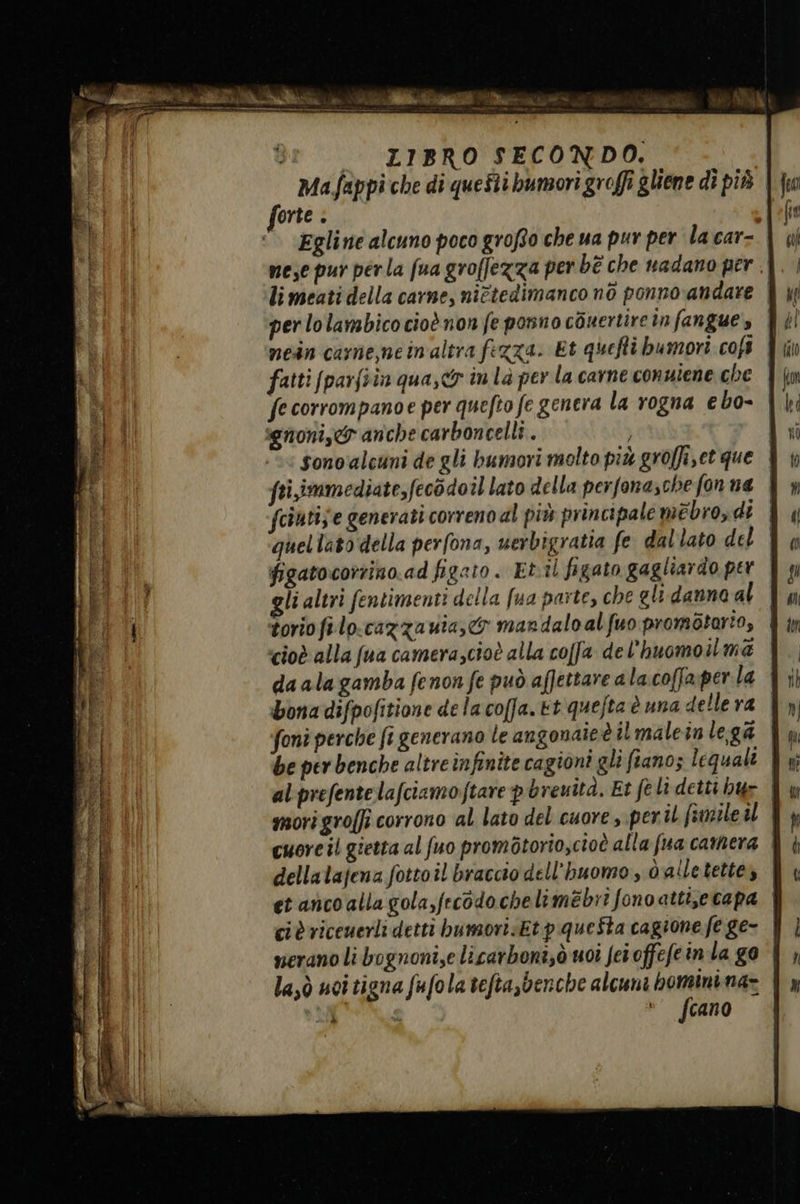 LIBRO SECONDO.
Ma ſappi che di queſti humori groſſi gliene di più
forte :
Egline alcuno poco groſſo che ua pur per la car-
ne,e pur per la ſua groſſezza per bẽ che uadano per
li meati della carne, niẽtedimanco nõ ponno andare
per lo lambico cioè non ſe ponno cõuertire in ſangue,
neàn carne,ne in altra fezza. Et queſti humori coſi
fatti ſparſi in qua,& in là per la carne conuiene che
ſe corrompano e per queſto ſe genera la rogna e bo-
gnoni,& anche carboncelli .
Sono alcuni de gli humori molto più groſſi,et que
ſti,immediate,ſecõdo il lato della perſona,che ſon na
ſciuti,e generati correno al più principale mẽbro, di
quel lato della perſona, uerbigratia ſe dal lato del
figato corrino ad figato . Et il figato gagliardo per
gli altri ſentimenti della ſua parte, che gli danno al
torio ſi lo cazza uia,& mandalo al ſuo promõtorio,
cioè alla ſua camera,cioè alla coſſa de l'huomo il mã
da a la gamba ſe non ſe può aſſettare a la coſſa per la
bona diſpoſitione de la coſſa. Et queſta è una delle ra
ſoni perche ſi generano le angonaie è il male in le gã
be per benche altre infinite cagioni gli ſiano; lequali
al preſente laſciamo ſtare p breuità. Et ſe li detti hu-
mori groſſi corrono al lato del cuore , per il ſimile il
cuore il gietta al ſuo promõtorio,cioè alla ſua camera
della laſena ſotto il braccio dell'huomo , ò alle tette,
et anco alla gola,ſecõdo che li mẽbri ſono atti,e capa
ci è riceuerli detti humori.Et p queſta cagione ſe ge-
nerano li bognoni,e li carboni,ò uoi ſei offeſe in la go
la,ò uoi tigna ſuſo la teſta,benche alcuni homini na-
ſcano